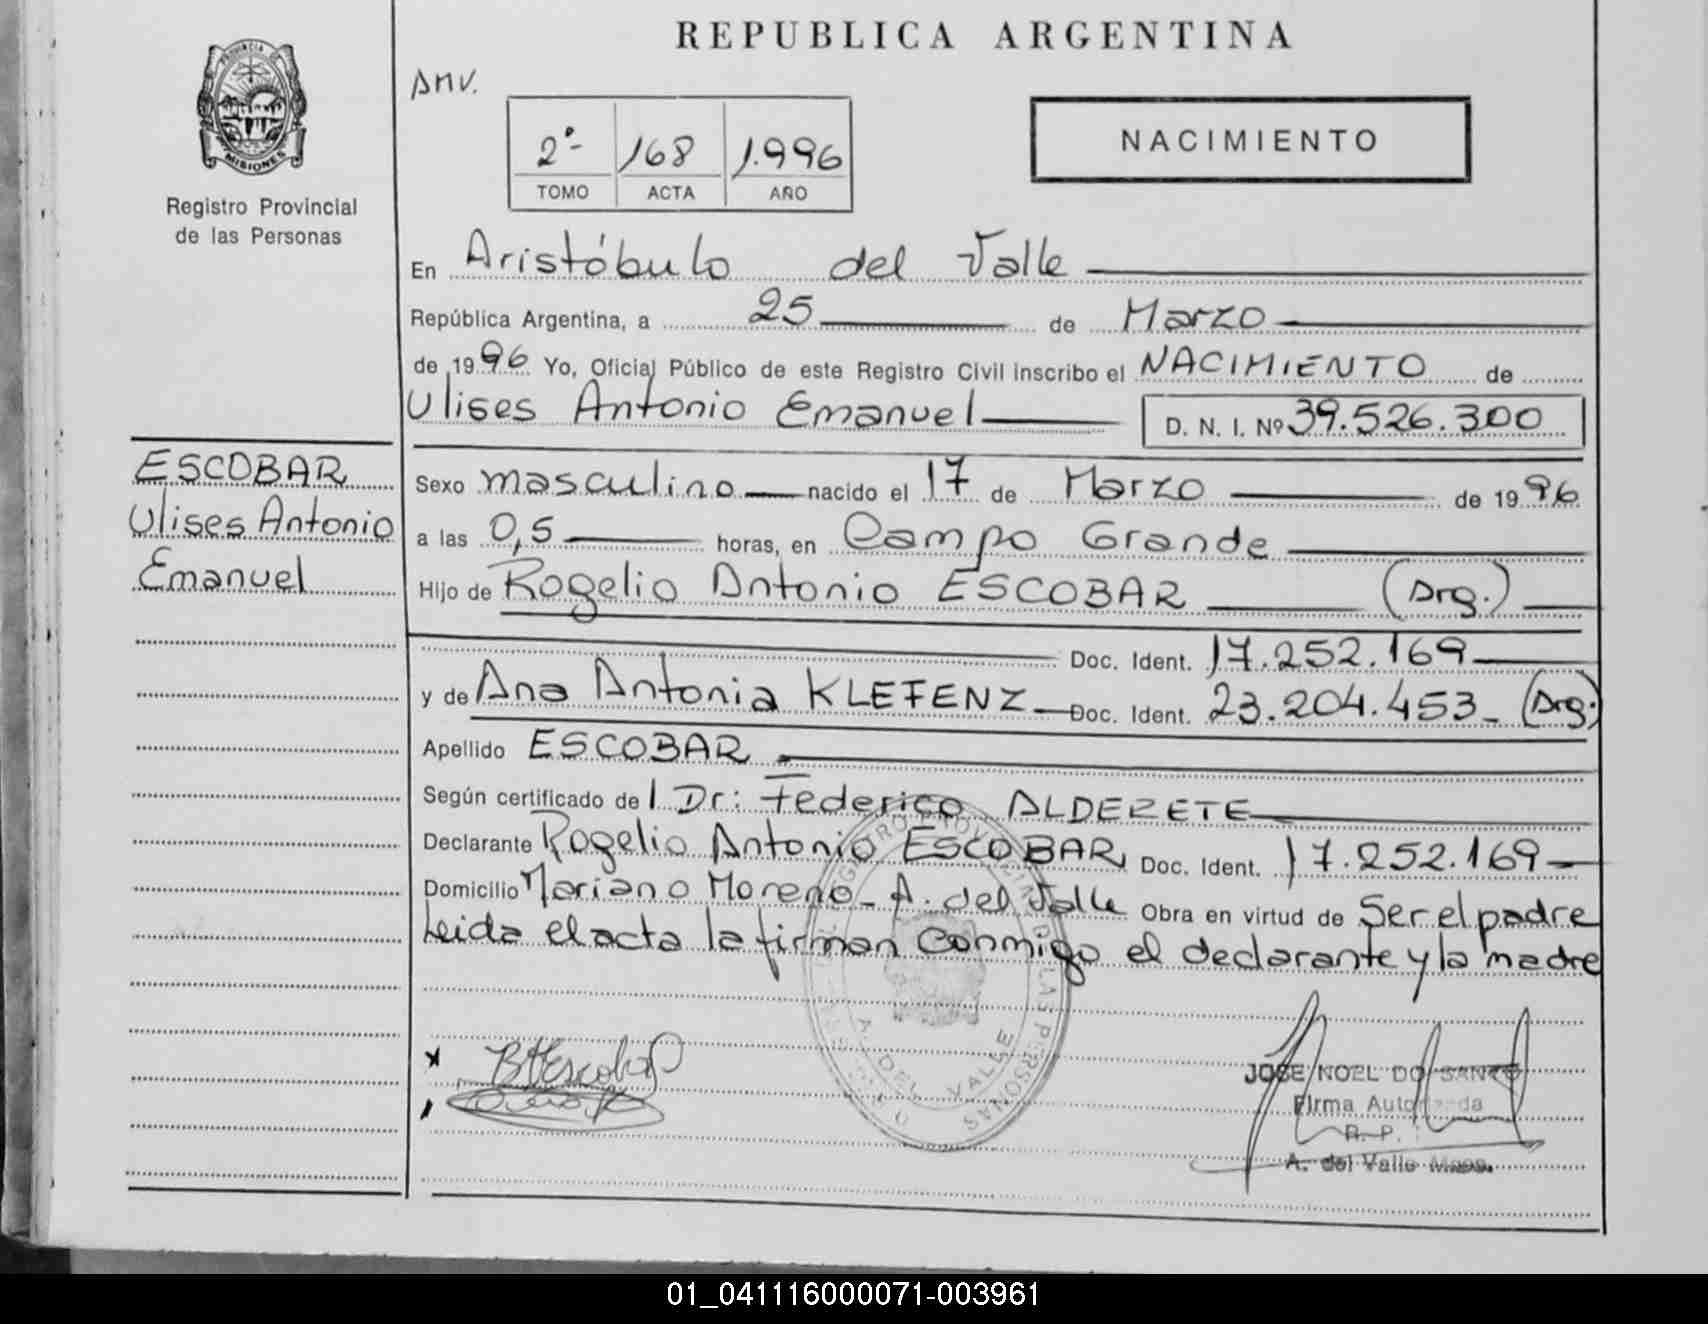 REPUBLICA ARGENTINA
PROVINCIA DE
MISIONES
Registro Provincial
de las Personas
2º- 168 1.996
TOMO ACTA AÑO
NACIMIENTO
En Aristóbulo del Valle
República Argentina, a 25 de Marzo
de 1996 Yo, Oficial Público de este Registro Civil inscribo el NACIMIENTO de
Ulises Antonio Emanuel D. N. I. Nº 39.526.300
ESCOBAR
Ulises Antonio
Emanuel
Sexo masculino nacido el 17 de Marzo de 1996
a las 0,5 horas, en Campo Grande
Hijo de Rogelio Antonio ESCOBAR (Arg.)
Doc. Ident. 17.252.169
y de Ana Antonia KLEFENZ Doc. Ident. 23.204.453 (Arg.)
Apellido ESCOBAR
Según certificado de l Dr: Federico ALDERETE
Declarante Rogelio Antonio ESCOBAR Doc. Ident. 17.252.169
Domicilio Mariano Moreno - A. del Valle Obra en virtud de Ser el padre
Leida el acta la firman conmigo el declarante y la madre
A. DEL VALLE
LAS PERSONAS
JOSE NOEL DO SANTO
Firma Autorizada
R. P.
A. del Valle Mnes.
01_041116000071-003961